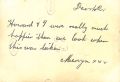 Dec 4th.
Howard & I were really much
happier than we look when
this was taken.
Mervyn x x x